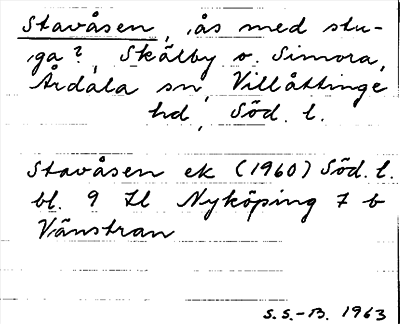 Stavåsen, ås med stu-
ga?, Skälby o. Simora,
Årdala sn, Villåttinge
hd, Söd. l.
Stavåsen ek (1960) Söd. l.
bl. 9 Il Nyköping 7 b
Vänstran
S.S.-B. 1963